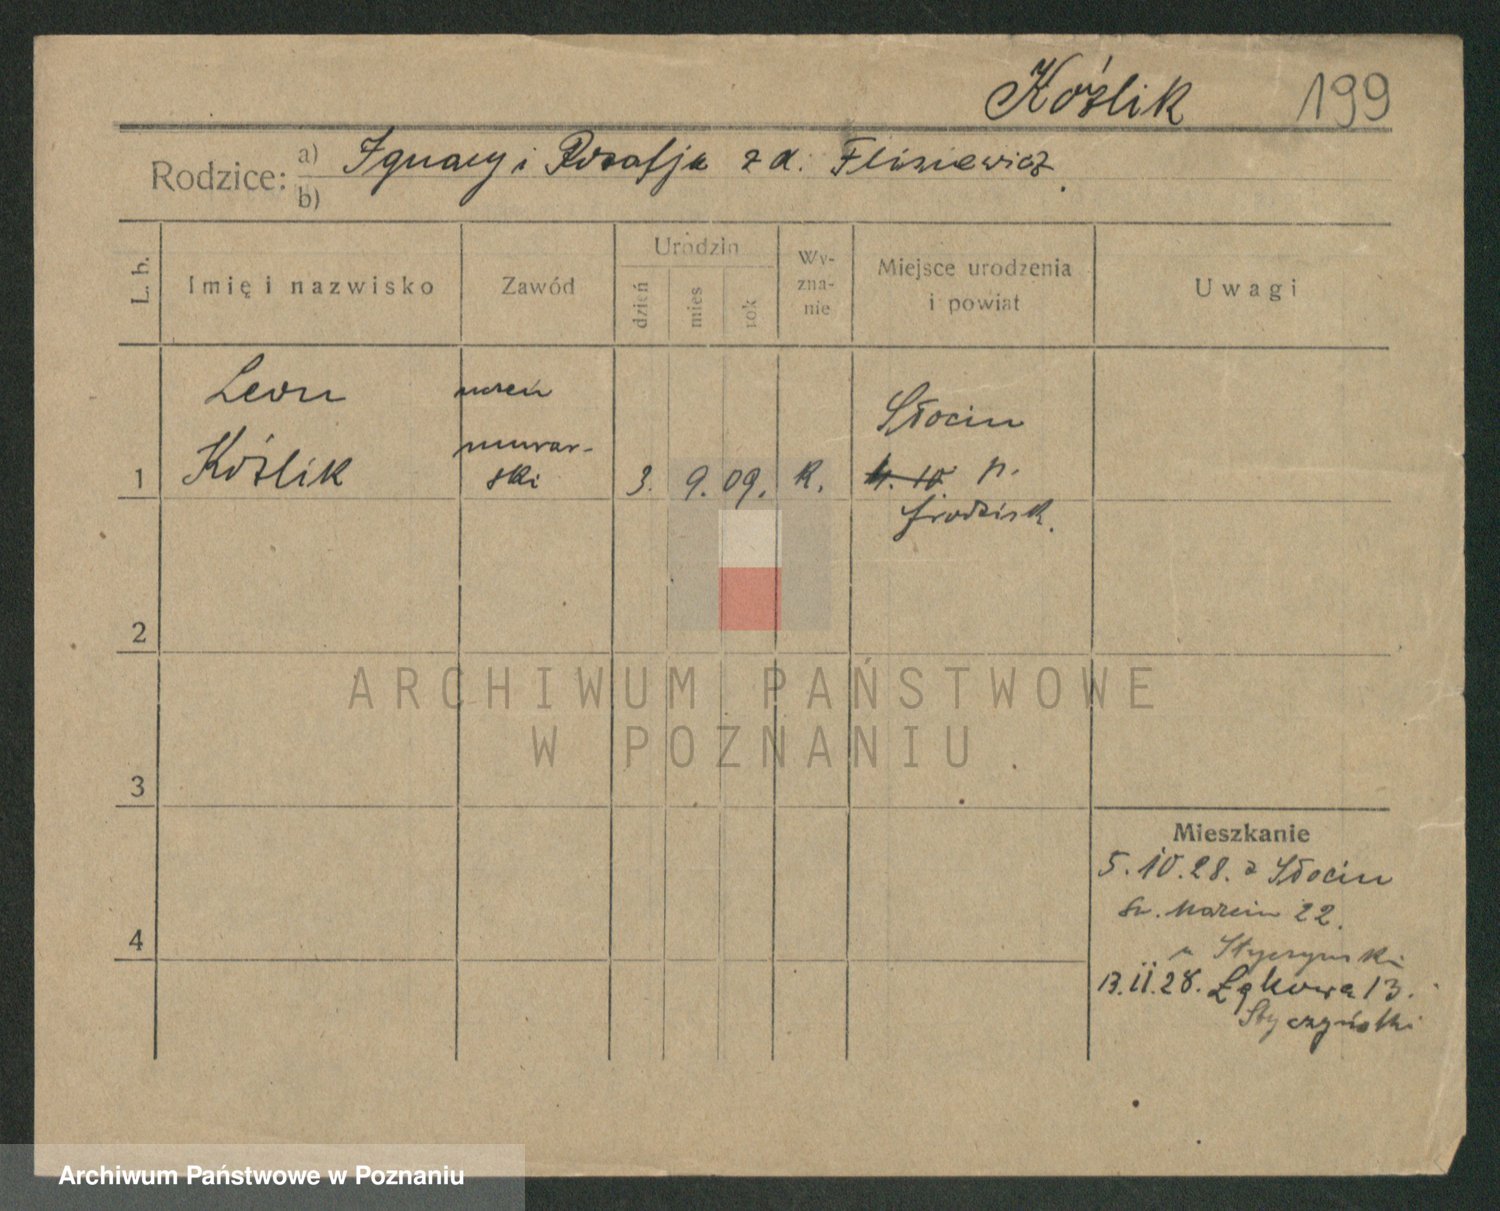 Kóźlik 199
Rodzice: a) Ignacy i Rozalja z d. Flisiewicz.
b)
L. b.
Imię i nazwisko
Zawód
Urodzin
dzień
mies
rok
Wy-
zna-
nie
Miejsce urodzenia
i powiat
Uwagi
1
Leon
Kóźlik
uczeń
murar-
ski
3. 9. 09.
k.
Słocin
p.
Grodzisk.
2
3
4
Mieszkanie
5.10.28. z Słocin
św. Marcin 22.
u Styczyński
13.11.28. Łąkowa 13.
Styczyński
ARCHIWUM PAŃSTWOWE
W POZNANIU
Archiwum Państwowe w Poznaniu